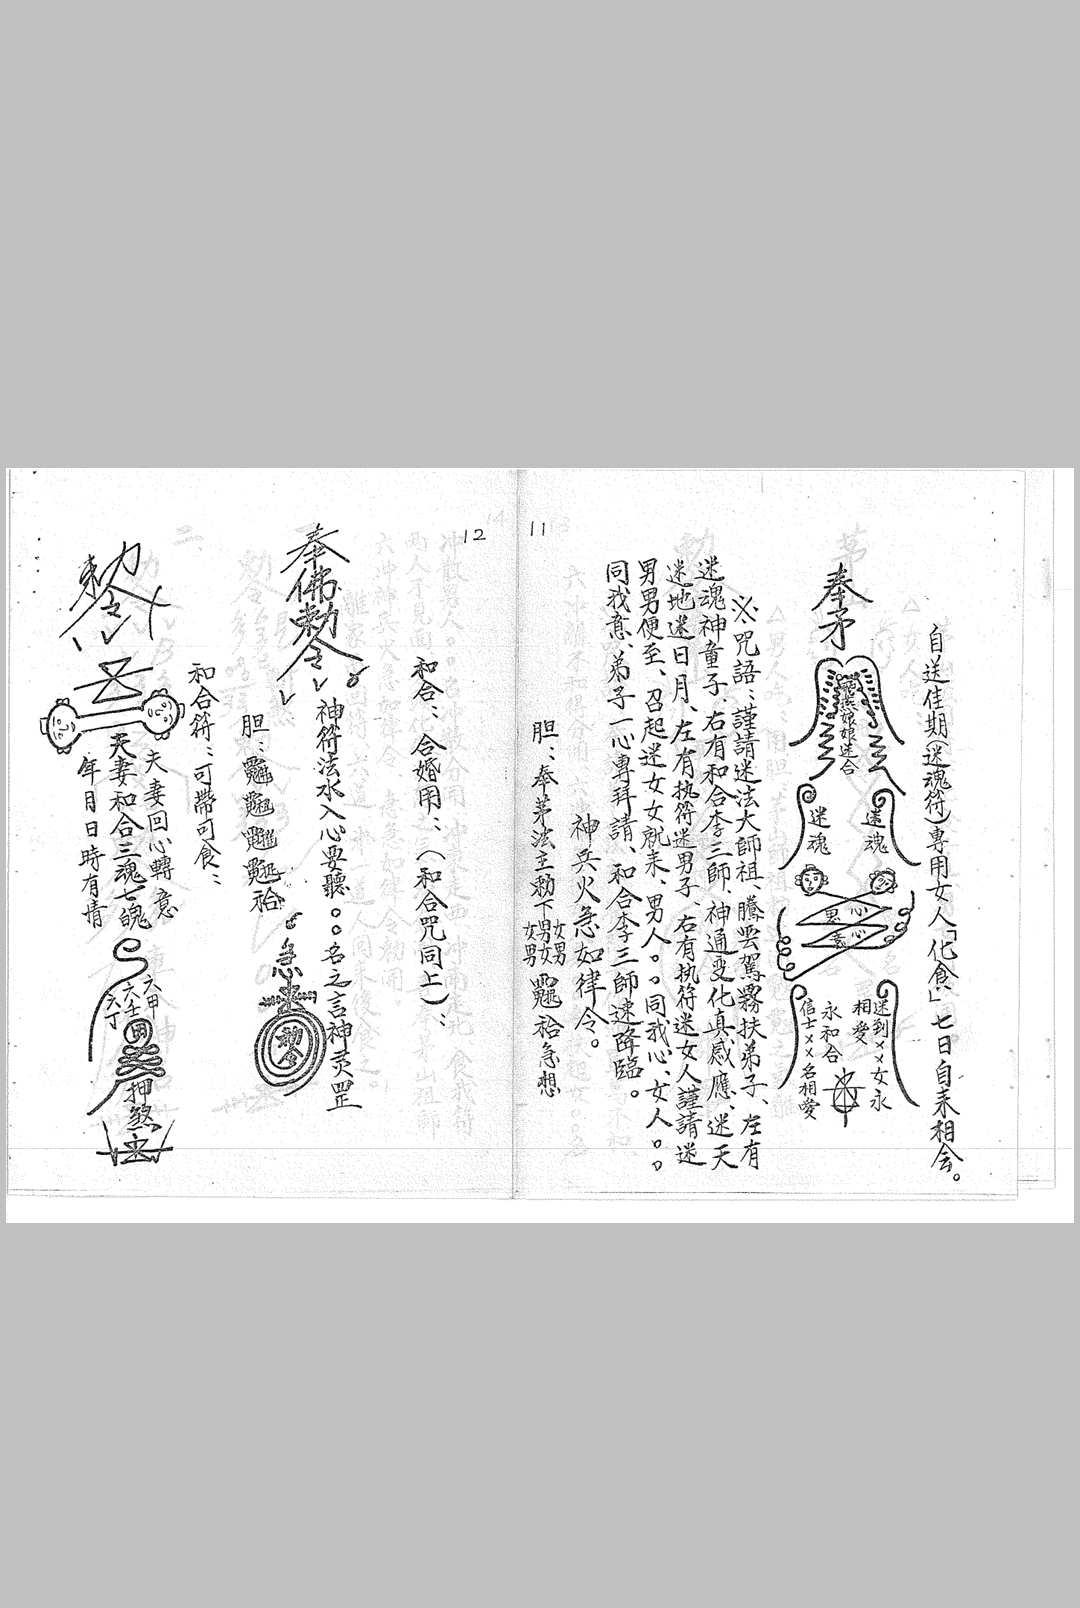 自送佳期(迷魂符)專用女人「化食」七日自來相会。
奉茅
娘娘迷合
迷魂
迷魂
心心
思意
迷到××女永
相愛
永和合
信士××名相愛
※咒語:謹請迷法大師祖、騰雲駕霧扶弟子、左有
迷魂神童子、右有和合李三師、神通变化真感應、迷天
迷地迷日月、左有执符迷男子、右有执符迷女人謹請迷
男男便至、召起迷女女就来、男人。。同我心、女人。。
同我意、弟子一心專拜請、和合李三師速降臨。
神兵火急如律令。
胆:奉茅法主勅下
袷急想
11
12
和合:合婚用:(和合咒同上):
奉佛勅令
神符法水入心要聽。。名之言神灵罡
急
勅令
胆:
袷
和合符:可帶可食:
勅令
夫妻回心轉意
夫妻和合三魂七魄
年月日時有情
六甲
六壬
六丁
押煞